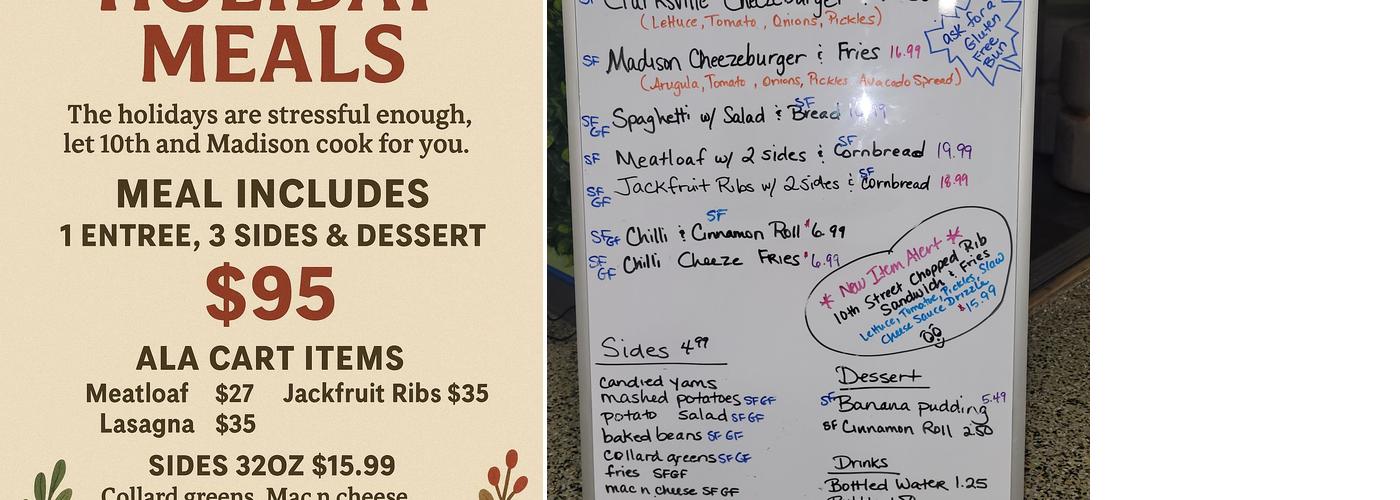 HOLIDAY
MEALS
The holidays are stressful enough,
let 10th and Madison cook for you.
MEAL INCLUDES
1 ENTREE, 3 SIDES & DESSERT
$95
ALA CART ITEMS
Meatloaf $27 Jackfruit Ribs $35
Lasagna $35
SIDES 32OZ $15.99
Collard greens, Mac n cheese
SF Clarksville Cheezeburger
(Lettuce, Tomato, Onions, Pickles)
ask for a
Gluten
Free
Bun
SF Madison Cheezeburger & Fries 16.99
(Arugula, Tomato, Onions, Pickles, Avacado Spread)
SF
SF GF Spaghetti w/ Salad & Bread
SF
SF Meatloaf w/ 2 sides & Cornbread 19.99
SF
SF GF Jackfruit Ribs w/ 2 sides & Cornbread 18.99
SF
SF GF Chilli & Cinnamon Roll $6.99
SF GF Chilli Cheeze Fries $6.99
* New Item Alert *
10th Street Chopped Rib
Sandwich & Fries
Lettuce, Tomatoe, Pickles, Slaw
Cheese Sauce Drizzle
$15.99
Sides 4.99
candied yams
mashed potatoes SF GF
potato salad SF GF
baked beans SF GF
collard greens SF GF
fries SF GF
mac n cheese SF GF
Dessert
SF Banana pudding 5.49
SF Cinnamon Roll 2.50
Drinks
Bottled Water 1.25